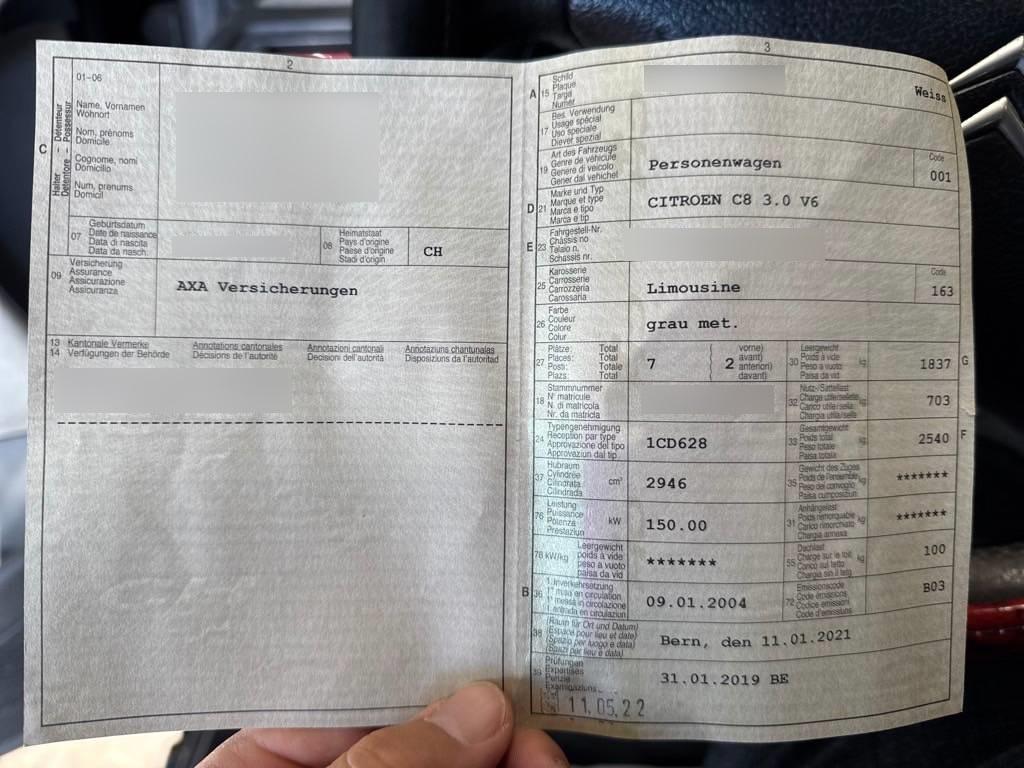 2
01-06
C
Halter - Détenteur
Detentore - Possessur
Name, Vornamen
Wohnort
Nom, prénoms
Domicile
Cognome, nomi
Domicilio
Num, prenums
Domicil
07
Geburtsdatum
Date de naissance
Data di nascita
Data da nasch.
08
Heimatstaat
Pays d'origine
Paese d'origine
Stadi d'origin
CH
09
Versicherung
Assurance
Assicurazione
Assicuranza
AXA Versicherungen
13 Kantonale Vermerke Annotations cantonales Annotazioni cantonali Annotaziuns chantunalas
14 Verfügungen der Behörde Décisions de l'autorité Decisioni dell'autorità Disposiziuns da l'autoritad
3
A 15
Schild
Plaque
Targa
Numer
Weiss
17
Bes. Verwendung
Usage spécial
Uso speciale
Diever spezial
19
Art des Fahrzeugs
Genre de véhicule
Genere di veicolo
Gener dal vehichel
Personenwagen
Code
001
D 21
Marke und Typ
Marque et type
Marca e tipo
Marca e tip
CITROEN C8 3.0 V6
E 23
Fahrgestell-Nr.
Châssis no
Telaio n.
Schassis nr.
25
Karosserie
Carrosserie
Carrozzeria
Carossaria
Limousine
Code
163
26
Farbe
Couleur
Colore
Colur
grau met.
27
Plätze: Total
Places: Total
Posti: Totale
Plazs: Total
7
2
vorne)
avant)
anteriori)
davant)
30
Leergewicht
Poids à vide
Peso a vuoto
Paisa da vid
kg
1837
G
18
Stammnummer
N° matricule
N. di matricola
Nr. da matricla
32
Nutz-/Sattellast
Charge utile/sellette
Carico utile/sella
Chargia utila/sella
kg
703
24
Typengenehmigung
Réception par type
Approvazione del tipo
Approvaziun dal tip
1CD628
33
Gesamtgewicht
Poids total
Peso totale
Paisa totala
kg
2540
F
37
Hubraum
Cylindrée
Cilindrata
Cilindrada
cm³
2946
35
Gewicht des Zuges
Poids de l'ensemble
Peso del convoglio
Paisa cumposiziun
kg
*******
76
Leistung
Puissance
Potenza
Prestaziun
kW
150.00
31
Anhängelast
Poids remorquable
Carico rimorchiato
Chargia annexa
kg
*******
78 kW/kg
Leergewicht
poids à vide
peso a vuoto
paisa da vid
*******
55
Dachlast
Charge sur le toit
Carico sul tetto
Chargia sin il tetg
kg
100
B 36
1. Inverkehrsetzung
1re mise en circulation
1a messa in circolazione
1. entrada en circulaziun
09.01.2004
72
Emissionscode
Code émissions
Codice emissioni
Code d'emissiuns
B03
38
(Raum für Ort und Datum)
(Espace pour lieu et date)
(Spazio per luogo e data)
(Spazi per lieu e data)
Bern, den 11.01.2021
39
Prüfungen
Expertises
Perizie
Examinaziuns
31.01.2019 BE
11.05.22